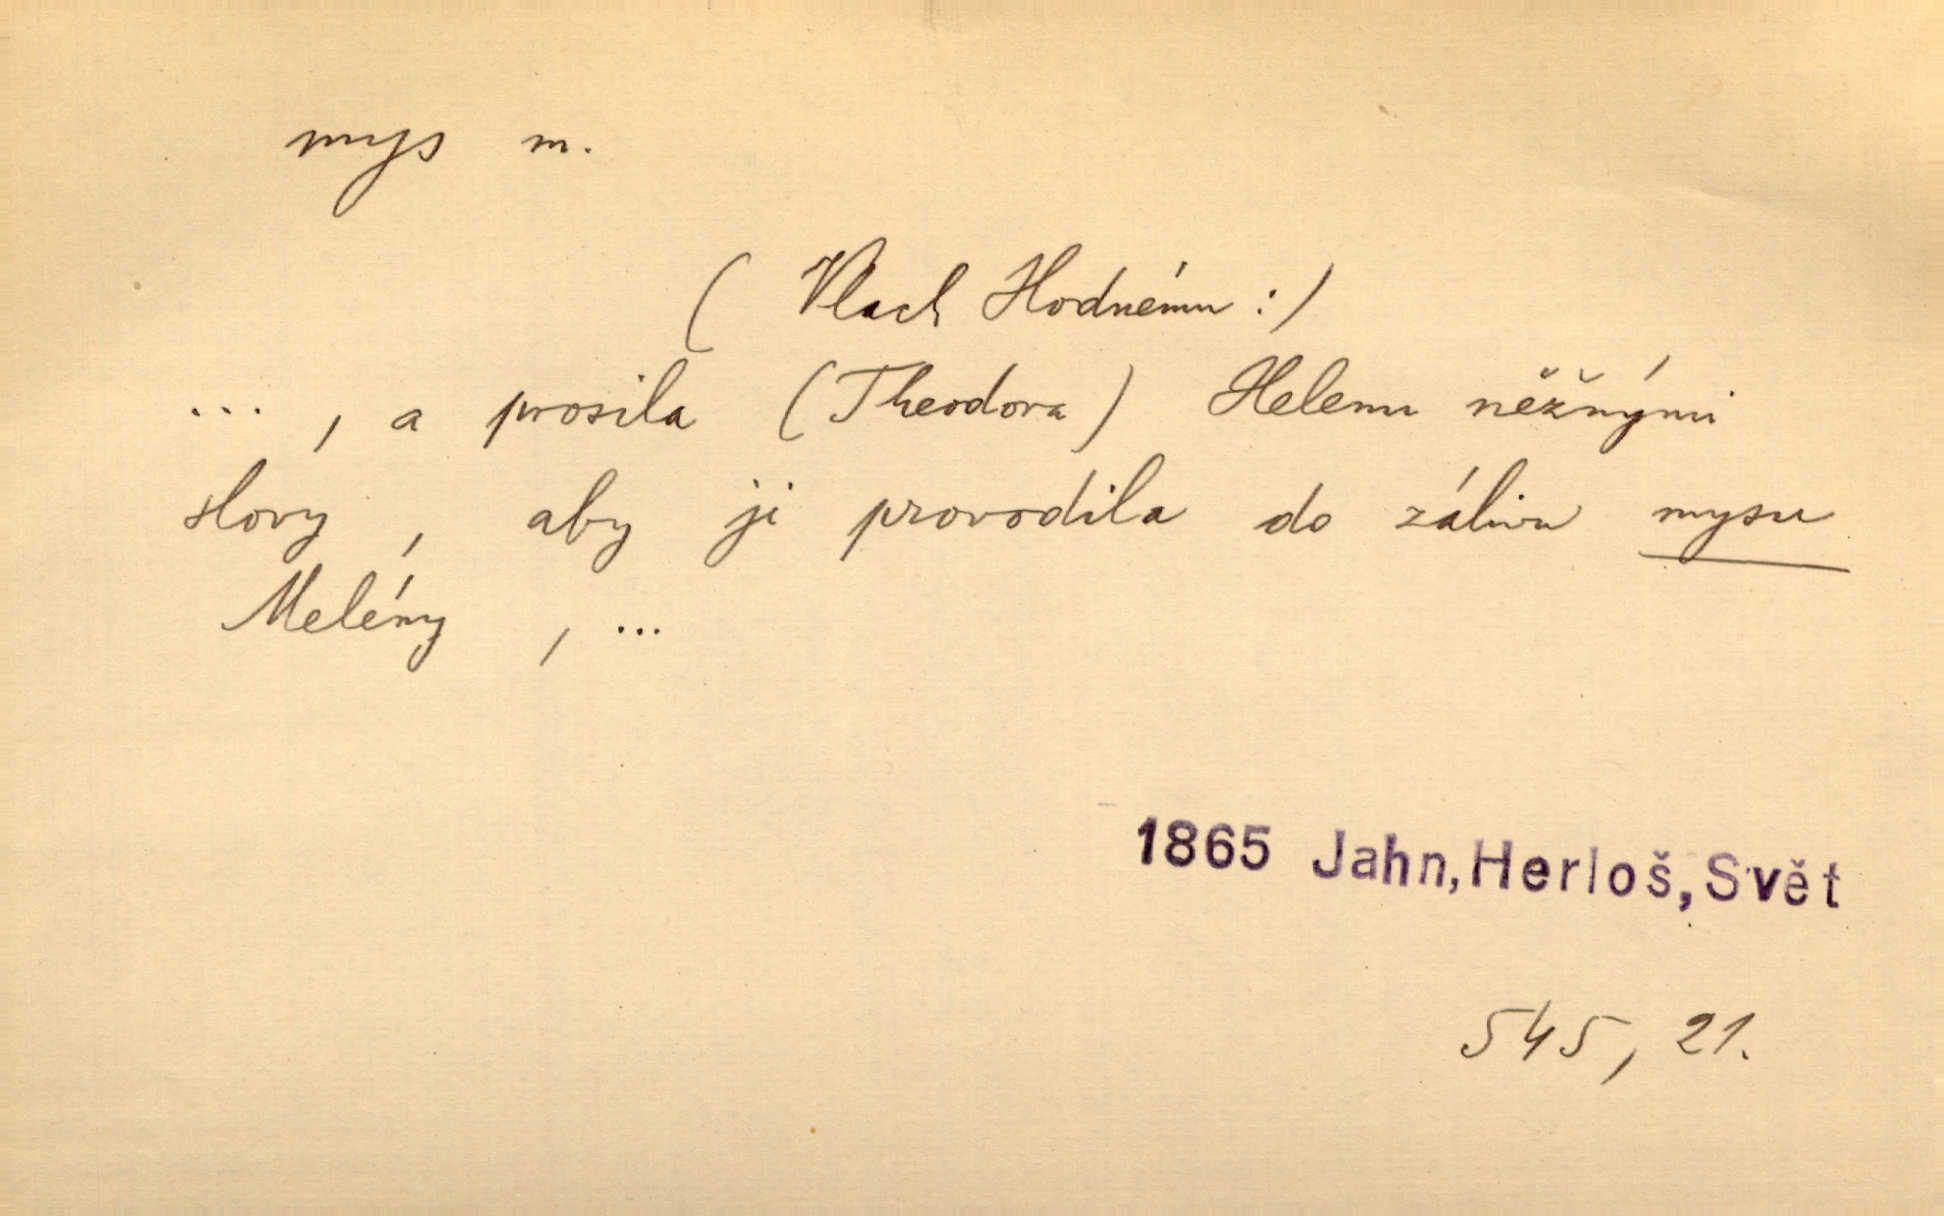 mys m.
( Vlach Hodnému : )
... , a prosila ( Theodora ) Helenu něžnými
slovy , aby ji provodila do zálivu mysu
Melény , ...
1865 Jahn, Herloš, Svět
545, 21.